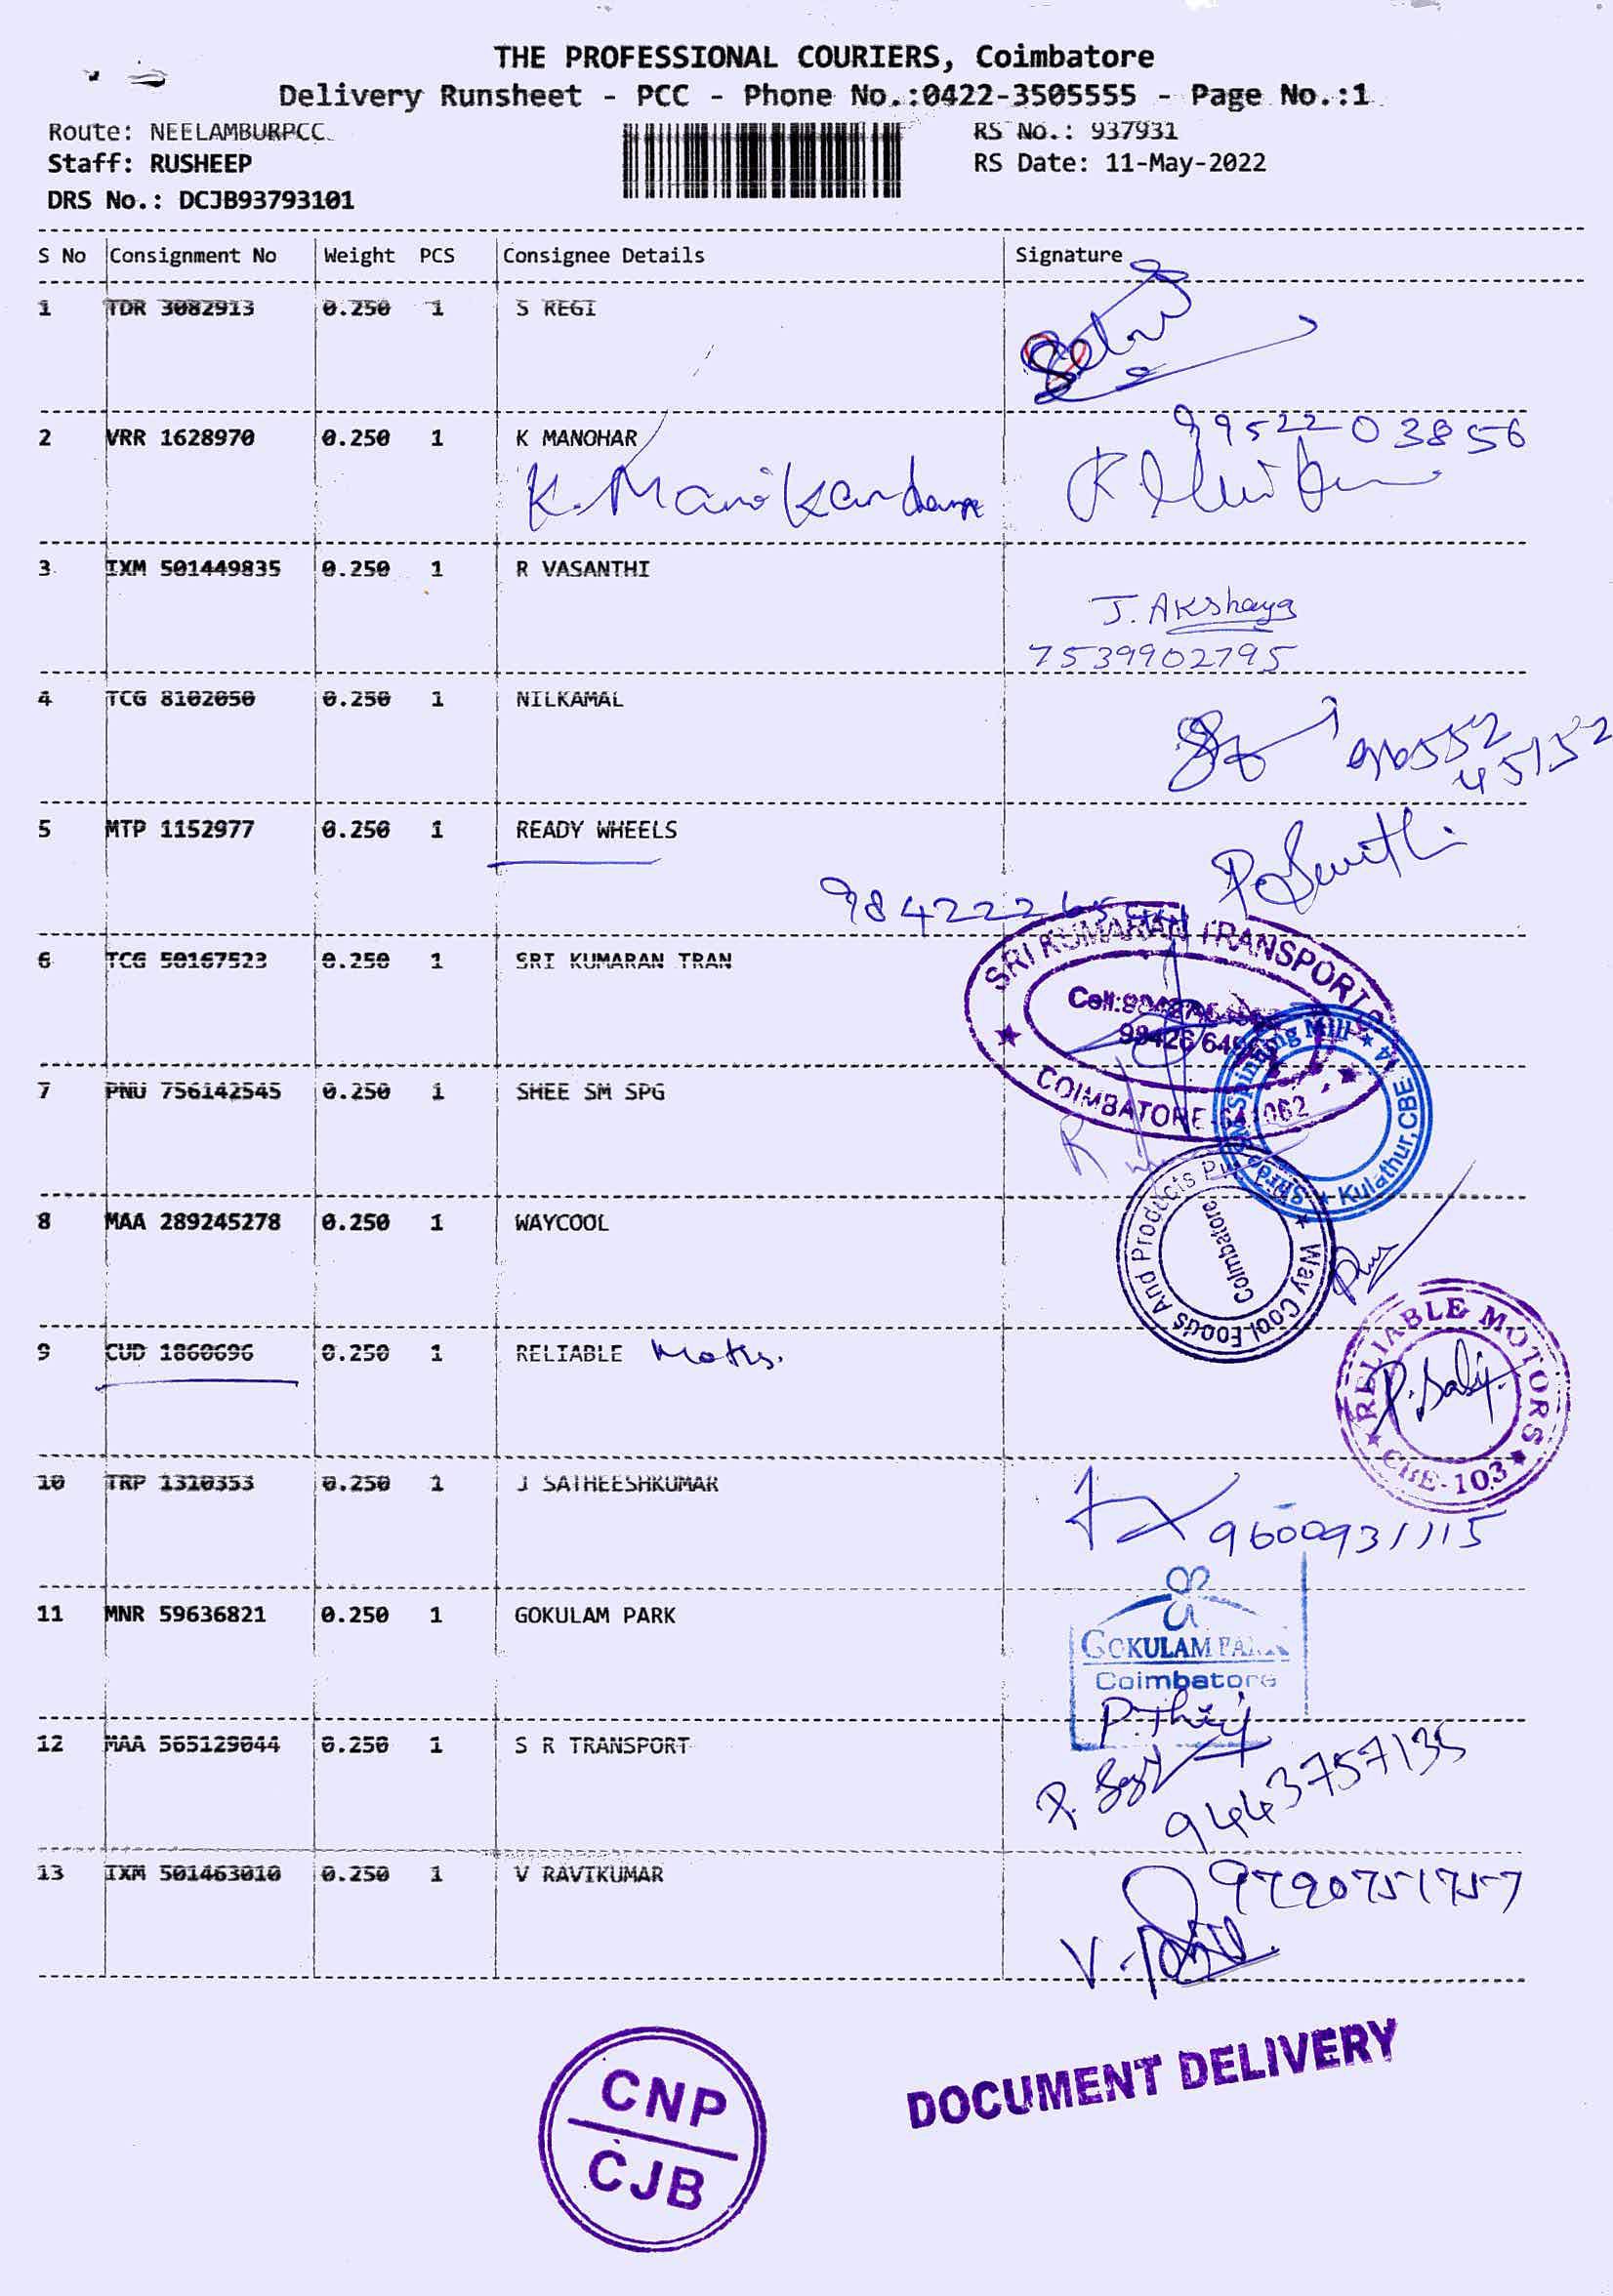 THE PROFESSIONAL COURIERS, Coimbatore
Delivery Runsheet - PCC - Phone No.:0422-3505555 - Page No.:1
Route: NEELAMBURPCC RS No.: 937931
Staff: RUSHEEP RS Date: 11-May-2022
DRS No.: DCJB93793101
S No Consignment No Weight PCS Consignee Details Signature
1 TDR 3082913 0.250 1 S REGI
9952203856
2 VRR 1628970 0.250 1 K MANOHAR
K. Manikandan
3 IXM 501449835 0.250 1 R VASANTHI
J. Akshaya
7539902795
4 TCG 8102050 0.250 1 NILKAMAL
96552
45152
5 MTP 1152977 0.250 1 READY WHEELS
SRI KUMARAN TRANSPORTS
6 TCG 50167523 0.250 1 SRI KUMARAN TRAN
COIMBATORE
7 PNU 756142545 0.250 1 SHEE SM SPG
Spinning Mill
Kulathur, CBE
8 MAA 289245278 0.250 1 WAYCOOL
Way Cool Foods And Products
Coimbatore
9 CUD 1860696 0.250 1 RELIABLE Motors.
RELIABLE MOTORS
CBE-103
10 TRP 1310353 0.250 1 J SATHEESHKUMAR
9600931115
11 MNR 59636821 0.250 1 GOKULAM PARK
GOKULAM PARK
Coimbatore
12 MAA 565129044 0.250 1 S R TRANSPORT
9443757135
13 IXM 501463010 0.250 1 V RAVIKUMAR
9790751757
CNP
CJB
DOCUMENT DELIVERY